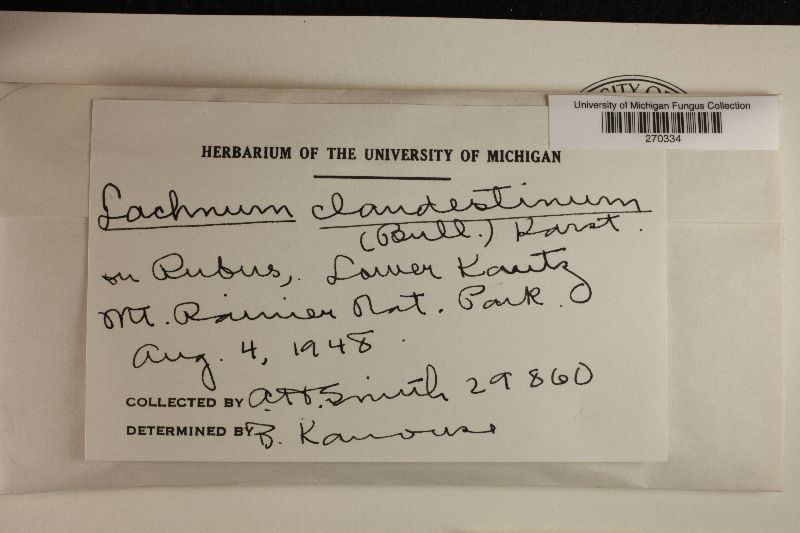 SITY OF
University of Michigan Fungus Collection
270334
HERBARIUM OF THE UNIVERSITY OF MICHIGAN
Lachnum clandestinum
(Bull.) Karst.
on Rubus, Lower Kautz
Mt. Rainier Nat. Park.
Aug. 4, 1948.
COLLECTED BY A.H. Smith 29860
DETERMINED BY B. Kanouse